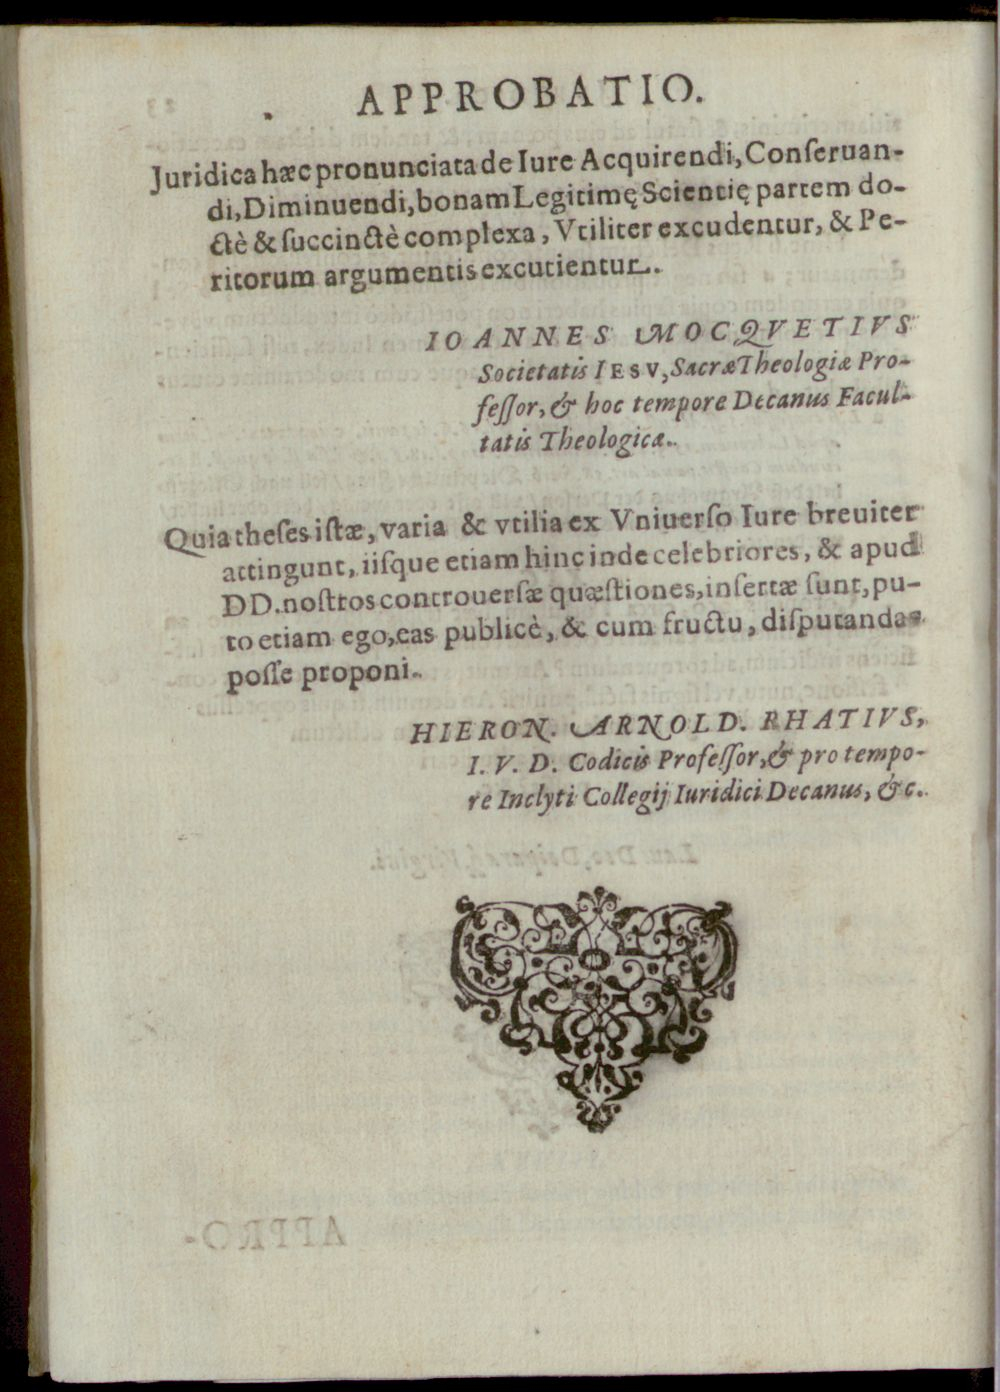 APPROBATIO.
Juridica hæc pronunciata de Iure Acquirendi, Conſeruan-
di, Diminuendi, bonam Legitimę Scientię partem do-
ctè & ſuccinctè complexa, Vtiliter excudentur, & Pe-
ritorum argumentis excutientur.
IOANNES MOCQVETIVS
Societatis IESV, Sacræ Theologiæ Pro-
feſſor, & hoc tempore Decanus Facul-
tatis Theologicæ.
Quia theſes iſtæ, varia & vtilia ex Vniuerſo Iure breuiter
attingunt, iiſque etiam hinc inde celebriores, & apud
DD. noſtros controuerſæ quæſtiones, inſertæ ſunt, pu-
to etiam ego, eas publicè, & cum fructu, diſputandas
poſſe proponi.
HIERON. ARNOLD. RHATIVS,
I. V. D. Codicis Profeſſor, & pro tempo-
re Inclyti Collegij Iuridici Decanus, &c.